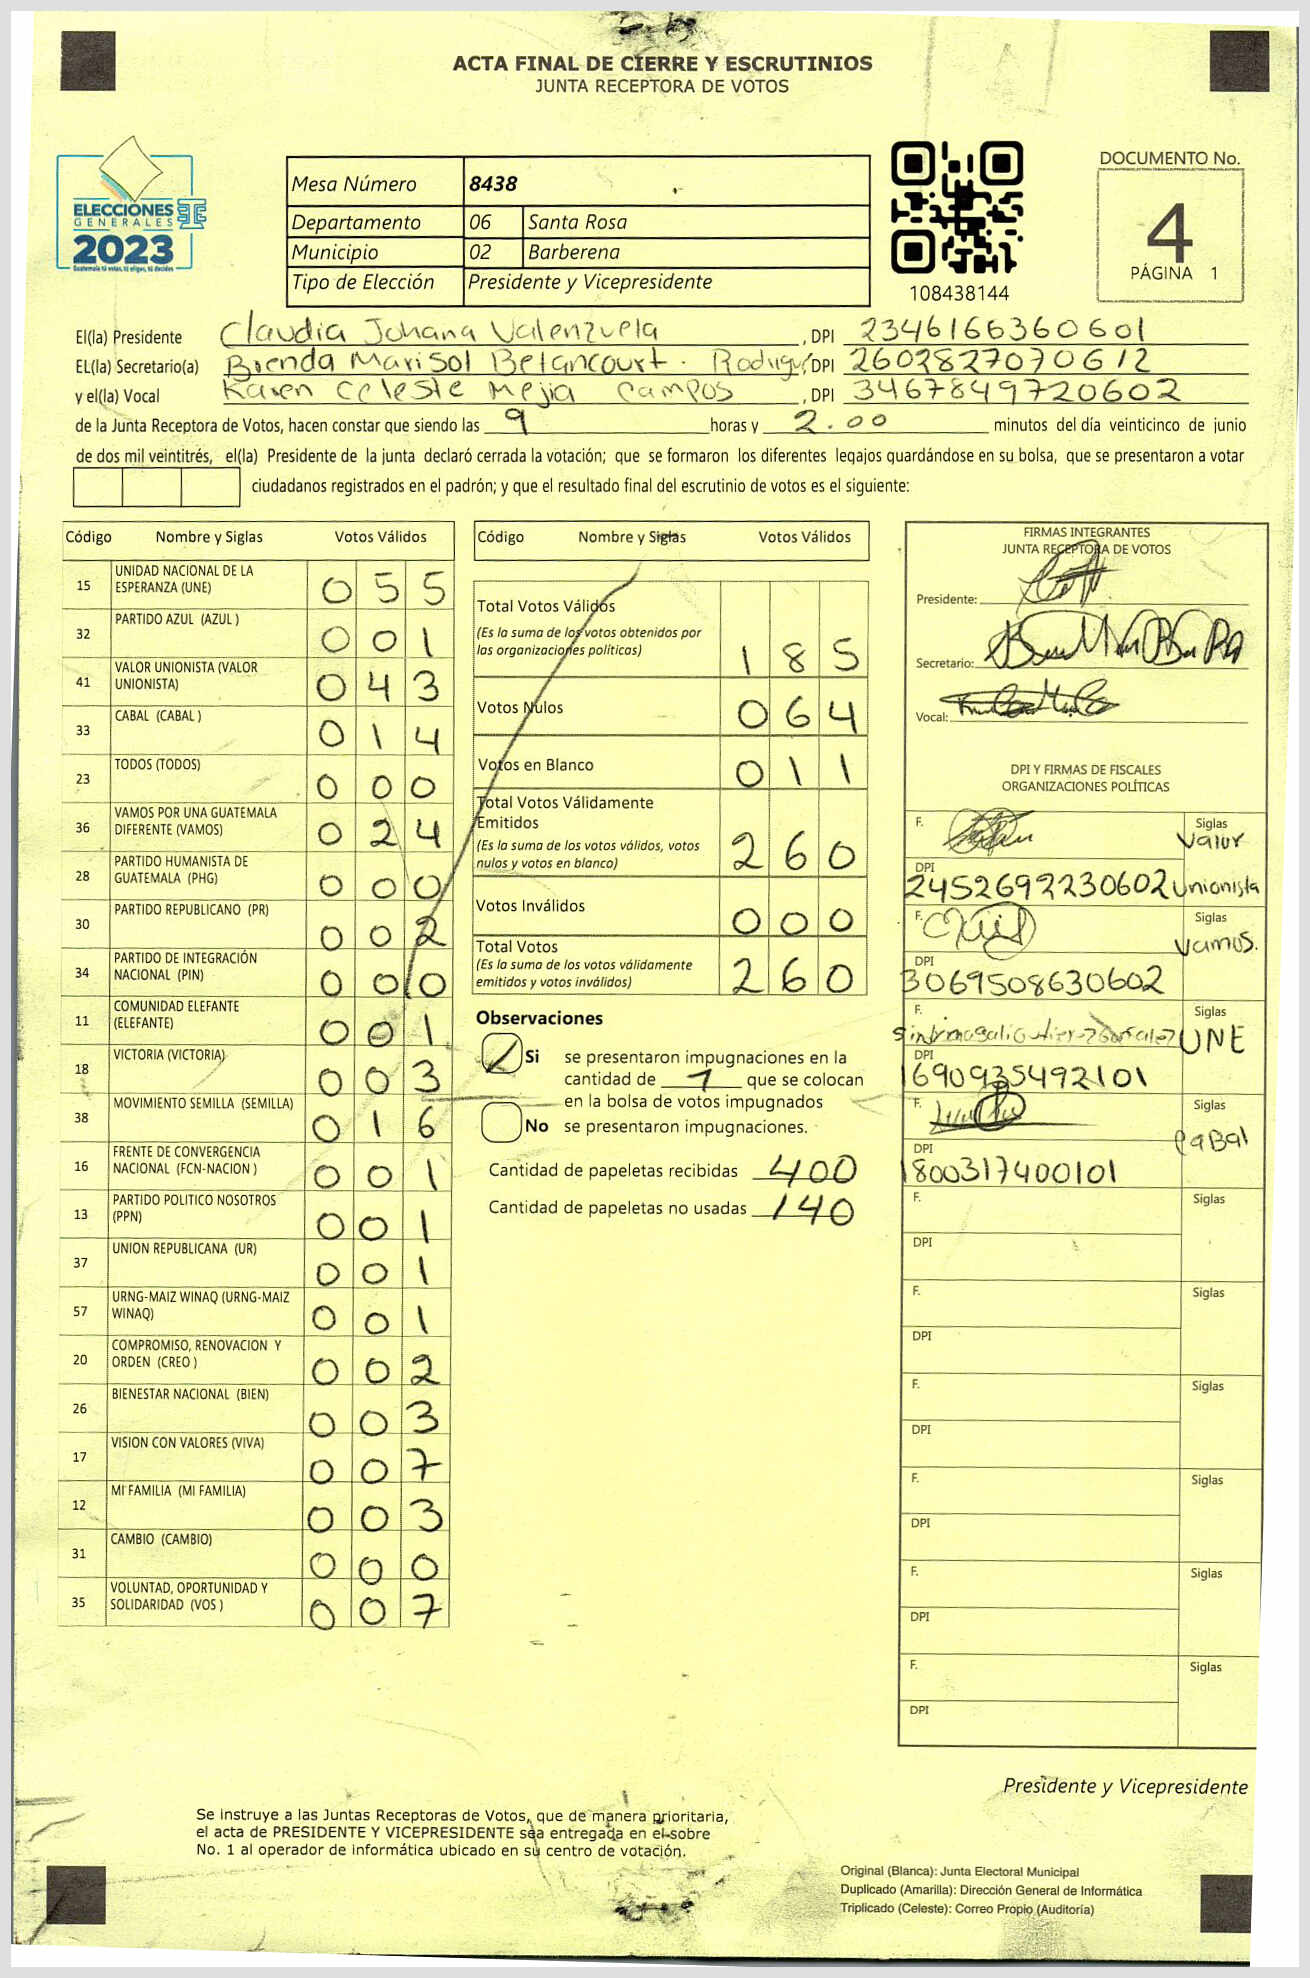 ACTA FINAL DE CIERRE Y ESCRUTINIOS
JUNTA RECEPTORA DE VOTOS
ELECCIONES
GENERALES
2023
Guatemala tú votas, tú eliges, tú decides
Mesa Número 8438
Departamento 06 Santa Rosa
Municipio 02 Barberena
Tipo de Elección Presidente y Vicepresidente
108438144
DOCUMENTO No.
4
PÁGINA 1
El(la) Presidente Claudia Johana Valenzuela , DPI 2346166360601
EL(la) Secretario(a) Brenda Marisol Betancourt. DPI 2602827070612
y el(la) Vocal Karen Celeste Mejia Campos , DPI 3467849720602
de la Junta Receptora de Votos, hacen constar que siendo las 9 horas y 2.00 minutos del día veinticinco de junio
de dos mil veintitrés, el(la) Presidente de la junta declaró cerrada la votación; que se formaron los diferentes legajos guardándose en su bolsa, que se presentaron a votar
ciudadanos registrados en el padrón; y que el resultado final del escrutinio de votos es el siguiente:
Código Nombre y Siglas Votos Válidos
15 UNIDAD NACIONAL DE LA
ESPERANZA (UNE) 055
32 PARTIDO AZUL (AZUL ) 001
41 VALOR UNIONISTA (VALOR
UNIONISTA) 043
33 CABAL (CABAL ) 014
23 TODOS (TODOS) 000
36 VAMOS POR UNA GUATEMALA
DIFERENTE (VAMOS) 024
28 PARTIDO HUMANISTA DE
GUATEMALA (PHG) 000
30 PARTIDO REPUBLICANO (PR) 002
34 PARTIDO DE INTEGRACIÓN
NACIONAL (PIN) 000
11 COMUNIDAD ELEFANTE
(ELEFANTE) 001
18 VICTORIA (VICTORIA) 003
38 MOVIMIENTO SEMILLA (SEMILLA) 016
16 FRENTE DE CONVERGENCIA
NACIONAL (FCN-NACION ) 001
13 PARTIDO POLITICO NOSOTROS
(PPN) 001
37 UNION REPUBLICANA (UR) 001
57 URNG-MAIZ WINAQ (URNG-MAIZ
WINAQ) 001
20 COMPROMISO, RENOVACION Y
ORDEN (CREO ) 002
26 BIENESTAR NACIONAL (BIEN) 003
17 VISION CON VALORES (VIVA) 007
12 MI FAMILIA (MI FAMILIA) 003
31 CAMBIO (CAMBIO) 000
35 VOLUNTAD, OPORTUNIDAD Y
SOLIDARIDAD (VOS ) 007
Código Nombre y Siglas Votos Válidos
Total Votos Válidos
(Es la suma de los votos obtenidos por
las organizaciones políticas) 185
Votos Nulos 064
Votos en Blanco 011
Total Votos Válidamente
Emitidos
(Es la suma de los votos válidos, votos
nulos y votos en blanco) 260
Votos Inválidos 000
Total Votos
(Es la suma de los votos válidamente
emitidos y votos inválidos) 260
Observaciones
Si se presentaron impugnaciones en la
cantidad de 1 que se colocan
en la bolsa de votos impugnados
No se presentaron impugnaciones.
Cantidad de papeletas recibidas 400
Cantidad de papeletas no usadas 140
FIRMAS INTEGRANTES
JUNTA RECEPTORA DE VOTOS
Presidente:
Secretario:
Vocal:
DPI Y FIRMAS DE FISCALES
ORGANIZACIONES POLÍTICAS
F. Siglas
Valor
DPI
2452692230602 Unionista
F. Siglas
Vamos.
DPI
3069508630602
F. Siglas
UNE
DPI
1690935492101
F. Siglas
CaBal
DPI
1800317400101
F. Siglas
DPI
F. Siglas
DPI
F. Siglas
DPI
F. Siglas
DPI
F. Siglas
DPI
F. Siglas
DPI
Presidente y Vicepresidente
Se instruye a las Juntas Receptoras de Votos, que de manera prioritaria,
el acta de PRESIDENTE Y VICEPRESIDENTE sea entregada en el sobre
No. 1 al operador de informática ubicado en su centro de votación.
Original (Blanca): Junta Electoral Municipal
Duplicado (Amarilla): Dirección General de Informática
Triplicado (Celeste): Correo Propio (Auditoría)